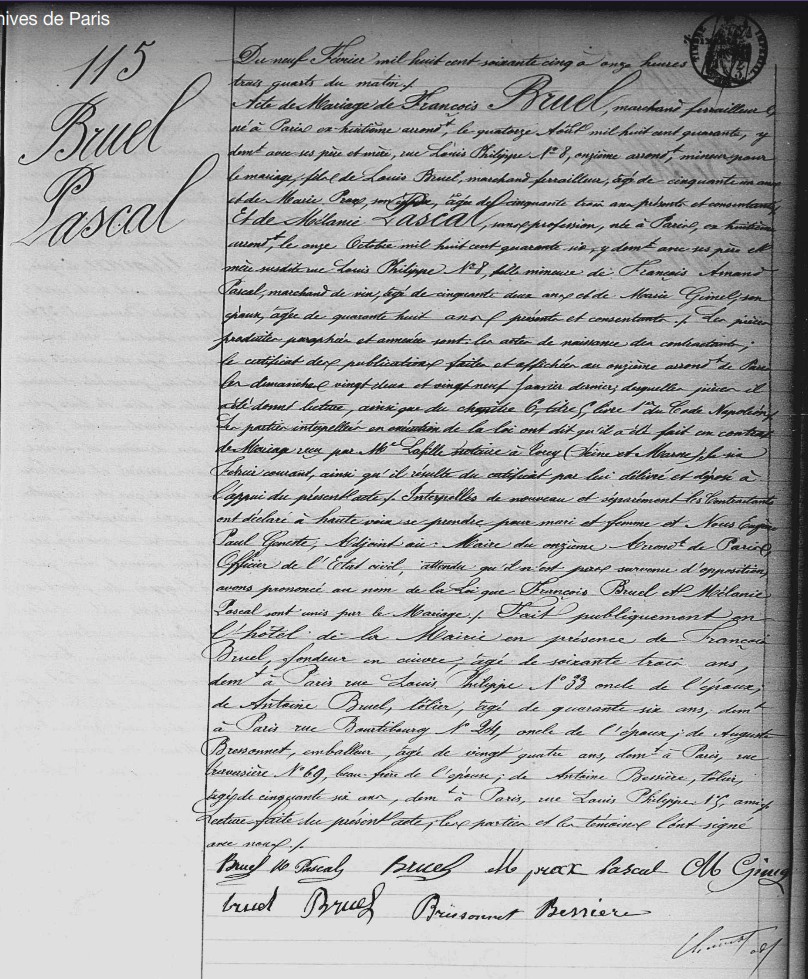 hives de Paris
115
Bruel
Pascal
Du neuf Février mil huit cent soixante cinq à onze heures
trois quarts du matin /.
Acte de Mariage de François Bruel, marchand ferrailleur
né à Paris en huitième arrondt, le quatorze Août mil huit cent quarante, y
demt avec ses père et mère, rue Louis Philippe No 8, onzième arrondt, mineur pour
le mariage, fils de Louis Bruel, marchand ferrailleur, âgé de cinquante un ans
et de Marie Prax, son épouse, âgée de cinquante trois ans présents et consentants
Et de Mélanie Pascal, sans profession, née à Paris, en huitième
arrondt, le onze Octobre mil huit cent quarante six, y demt avec ses père et
mère susdite rue Louis Philippe No 8, fille mineure de François Amand
Pascal, marchand de vin, âgé de cinquante deux ans et de Marie Gimel, son
épouse, âgée de quarante huit ans présents et consentants /. Les pièces
produites paraphées et annexées sont: les actes de naissance des contractants;
le certificat des publications faites et affichées au onzième arrondt de Paris
les dimanches vingt deux et vingt neuf Janvier dernier; desquelles pièces il
a été donné lecture, ainsi que du chapitre 6, titre 5, livre 1er du Code Napoléon /.
Les parties interpellées en exécution de la loi ont dit qu'il a été fait un contrat
de Mariage reçu par Me Lafille notaire à Torcy (Seine et Marne), le six
Février courant, ainsi qu'il résulte du certificat par lui délivré et déposé à
l'appui du présent acte /. Interpellés de nouveau et séparément les Contractants
ont déclaré à haute voix se prendre pour mari et femme et Nous
Paul Geneste, Adjoint au Maire du onzième Arrondt de Paris,
Officier de l'Etat civil, attendu qu'il n'est point survenu d'opposition,
avons prononcé au nom de la Loi que François Bruel et Mélanie
Pascal sont unis par le Mariage /. Fait publiquement en
l'hôtel de la Mairie en présence de François
Bruel, fondeur en cuivre, âgé de soixante trois ans,
demt à Paris rue Louis Philippe No 33 oncle de l'époux;
de Antoine Bruel, tôlier, âgé de quarante six ans, demt
à Paris rue Bourtibourg No 24, oncle de l'époux; de Auguste
Bressonnet, emballeur, âgé de vingt quatre ans, demt à Paris, rue
Traversière No 69, beau frère de l'épouse; de Antoine Bessière, tolier,
âgé de cinquante six ans, demt à Paris, rue Louis Philippe 15, ami /.
Lecture faite du présent acte, les parties et les témoins l'ont signé
avec nous /.
Bruel M Pascal Bruel M prax Pascal M Gimel
bruel Bruel Brissonnet Bessière